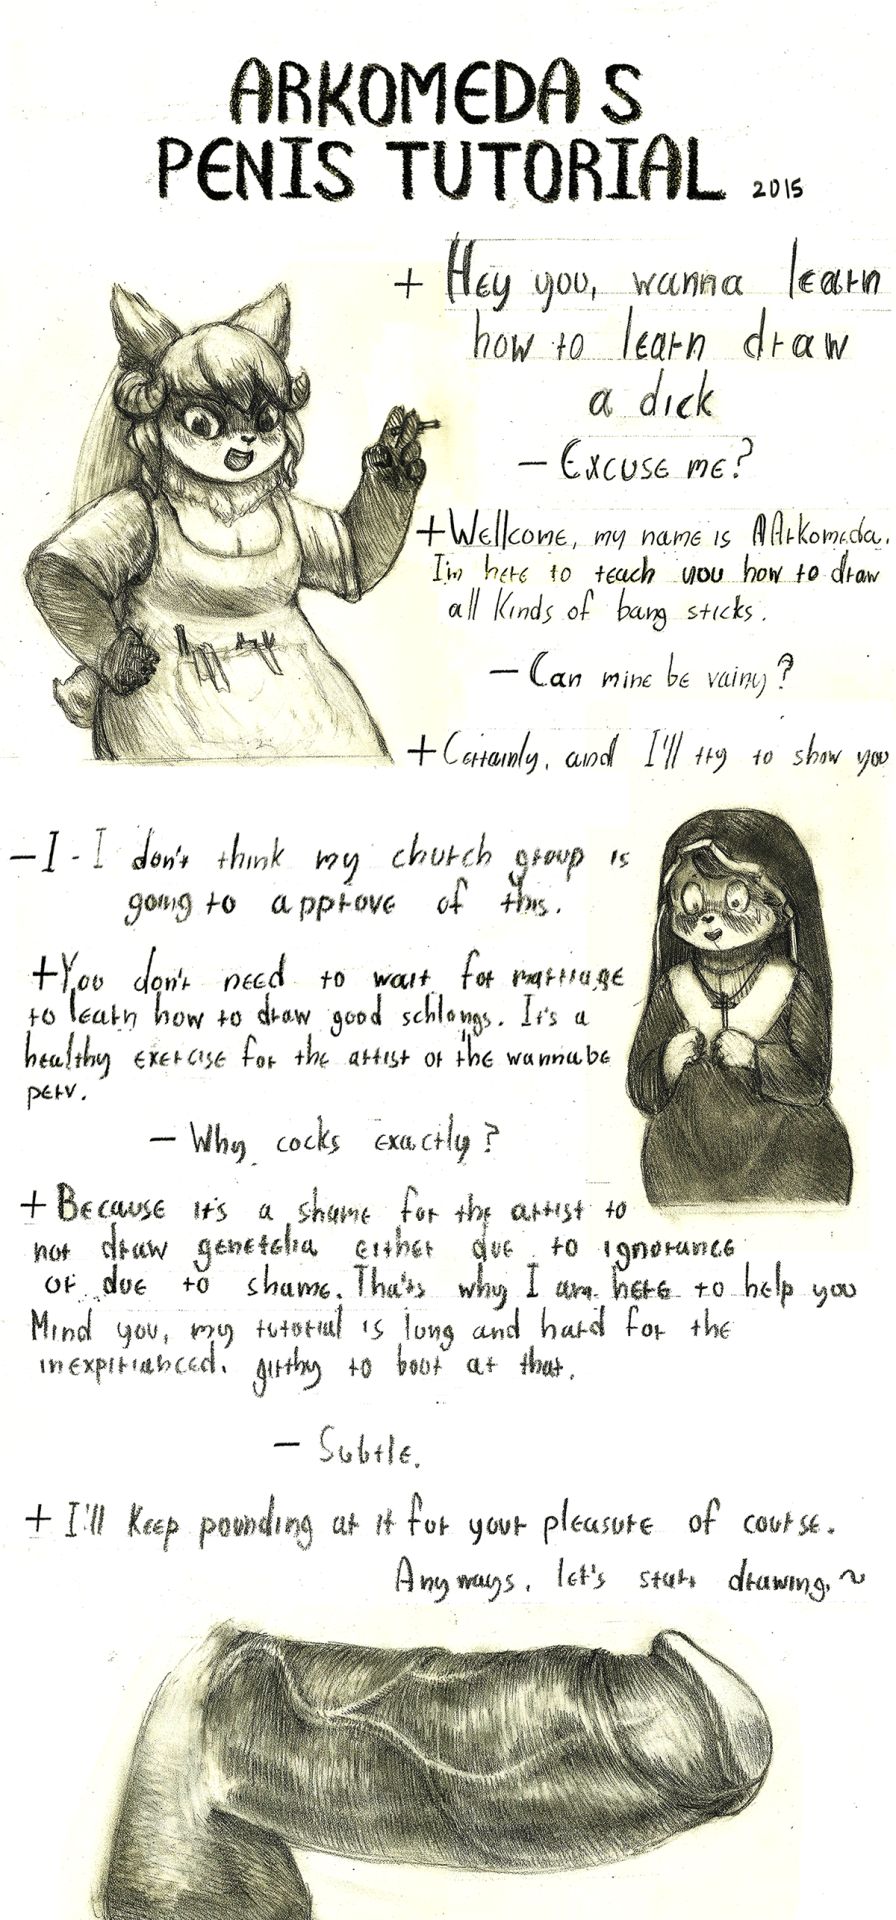 ARKOMEDA S
PENIS TUTORIAL 2015
+ Hey you, wanna learn
how to learn draw
a dick
- Excuse me?
+ Wellcome, my name is AArkomeda.
I'm here to teach you how to draw
all kinds of bang sticks.
- Can mine be vainy?
+ Certainly, and I'll try to show you
- I - I don't think my church group is
going to approve of this.
+ You don't need to wait for marriage
to learn how to draw good schlongs. It's a
healthy exercise for the artist or the wannabe
perv.
- Why cocks exactly?
+ Because it's a shame for the artist to
not draw genetelia either due to ignorance
or due to shame. That's why I am here to help you
Mind you, my tutorial is long and hard for the
inexpirianced. girthy to boot at that.
- Subtle.
+ I'll keep pounding at it for your pleasure of course.
Anyways, let's start drawing.~